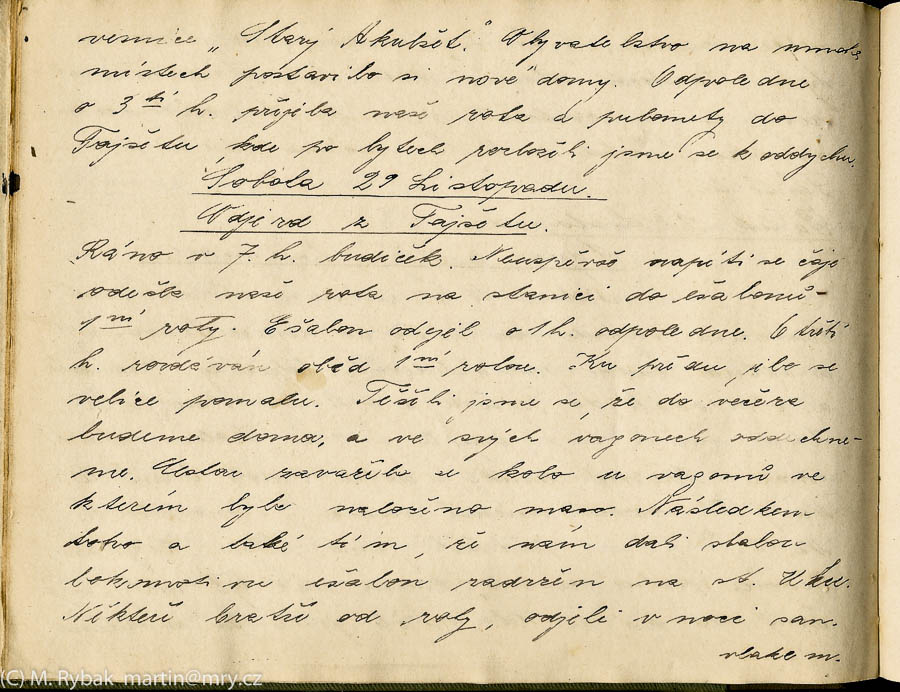 vesnice „Starý Akulšet." Obyvatelstvo na mnoha
místech postavilo si nové domy. Odpoledne
o 3 tí h. přijela naše rota a pulomety do
Tajšetu, kde po bytech rozložili jsme se k oddychu.
Sobota 29 Listopadu.
Odjezd z Tajšetu.
Ráno v 7. h. budíček. Neuspěvše napíti se čaje
odešla naše rota na stanici do ešalonů-
1 ní roty. Ešalon odejel o 1 h. odpoledne. O třetí
h. rozdáván oběd 1 ní rotou. Ku předu jelo se
velice pomalu. Těšili jsme se, že do večera
budeme doma, a ve svých vagonech oddechne-
me. Cestou zavařilo se kolo u vagonů ve
kterém bylo naloženo maso. Následkem
toho a také tím, že nám dali starou
lokomotivu ešalon zadržen na st.
Někteří bratři od roty, odjeli v noci san.
vlakem.
(C) M. Rybak martin@mry.cz